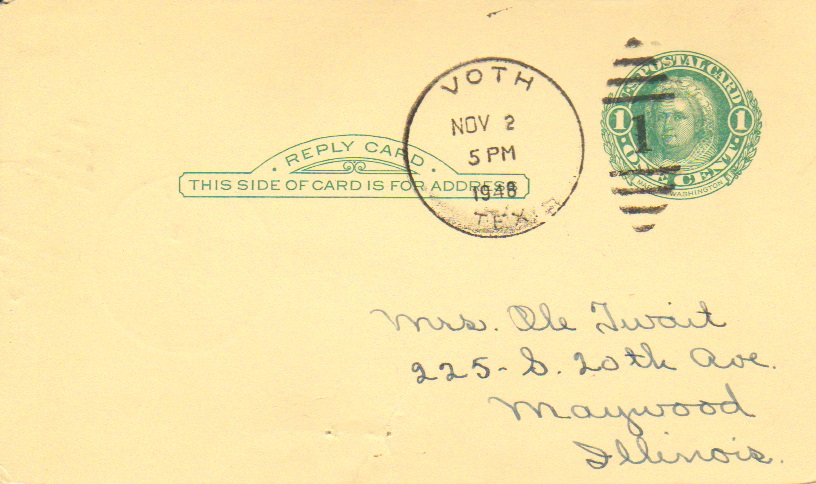 VOTH
NOV 2
5 PM
1948
TEX
U.S. POSTAL CARD
1 1
1
ONE CENT
WASHINGTON
· REPLY CARD ·
THIS SIDE OF CARD IS FOR ADDRESS
Mrs. Ole Twait
225 - S. 20th Ave.
Maywood
Illinois.